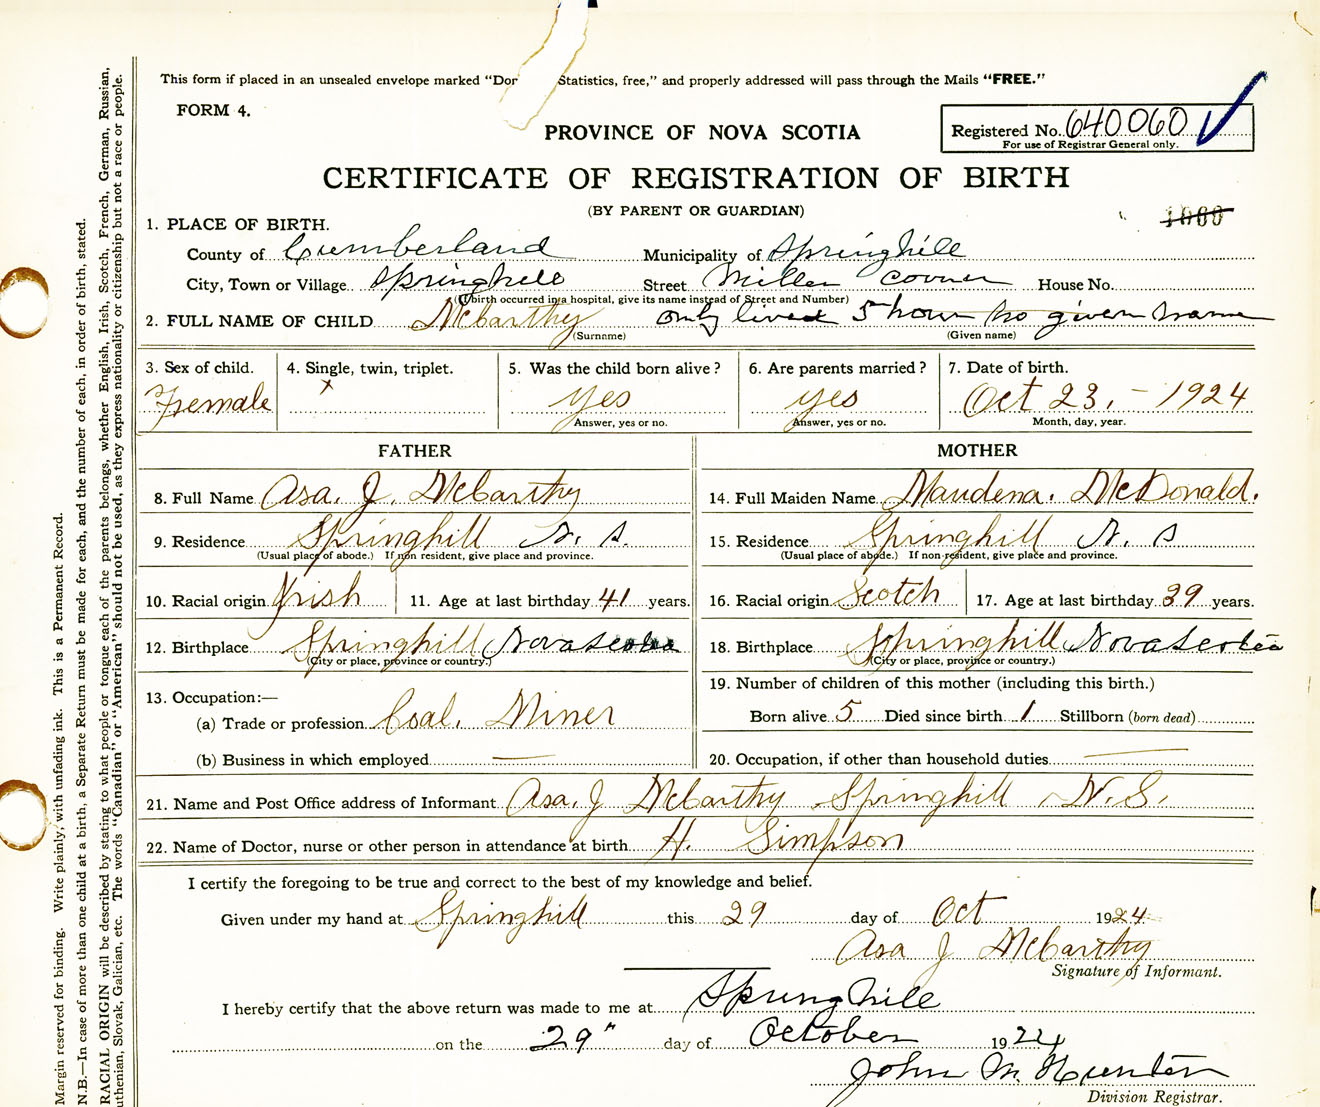 This form if placed in an unsealed envelope marked "Dor Statistics, free," and properly addressed will pass through the Mails "FREE."
FORM 4.
PROVINCE OF NOVA SCOTIA
Registered No. 640060
For use of Registrar General only.
CERTIFICATE OF REGISTRATION OF BIRTH
(BY PARENT OR GUARDIAN)
1. PLACE OF BIRTH.
County of Cumberland Municipality of Springhill
City, Town or Village Springhill Street Miller Corner House No.
(If birth occurred in a hospital, give its name instead of Street and Number)
2. FULL NAME OF CHILD McCarthy only lived 5 hour no given name
(Surname) (Given name)
3. Sex of child. 4. Single, twin, triplet. 5. Was the child born alive? 6. Are parents married? 7. Date of birth.
Female x yes yes Oct 23, - 1924
Answer, yes or no. Answer, yes or no. Month, day, year.
FATHER MOTHER
8. Full Name Asa. J. McCarthy 14. Full Maiden Name Maudena. McDonald.
9. Residence Springhill N. S. 15. Residence Springhill N. S
(Usual place of abode.) If non resident, give place and province. (Usual place of abode.) If non-resident, give place and province.
10. Racial origin Irish 11. Age at last birthday 41 years. 16. Racial origin Scotch 17. Age at last birthday 39 years.
12. Birthplace Springhill Nova Scotia 18. Birthplace Springhill Nova Scotia
(City or place, province or country.) (City or place, province or country.)
13. Occupation:— 19. Number of children of this mother (including this birth.)
(a) Trade or profession Coal. Miner Born alive 5 Died since birth 1 Stillborn (born dead)
(b) Business in which employed — 20. Occupation, if other than household duties —
21. Name and Post Office address of Informant Asa. J McCarthy Springhill - N. S.
22. Name of Doctor, nurse or other person in attendance at birth H. Simpson
I certify the foregoing to be true and correct to the best of my knowledge and belief.
Given under my hand at Springhill this 29 day of Oct 1924
Asa J McCarthy
Signature of Informant.
I hereby certify that the above return was made to me at Springhill
on the 29" day of October 1924
John M. Hunter
Division Registrar.
Margin reserved for binding. Write plainly, with unfading ink. This is a Permanent Record.
N.B.—In case of more than one child at a birth, a Separate Return must be made for each, and the number of each, in order of birth, stated.
RACIAL ORIGIN will be described by stating to what people or tongue each of the parents belongs, whether English, Irish, Scotch, French, German, Russian,
uthenian, Slovak, Galician, etc. The words "Canadian" or "American" should not be used, as they express nationality or citizenship but not a race or people.